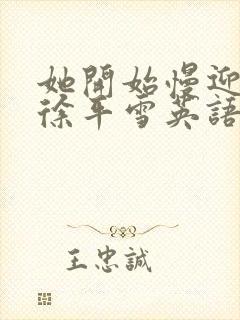 她開始慢迎
徐平雪英語
王忠誠